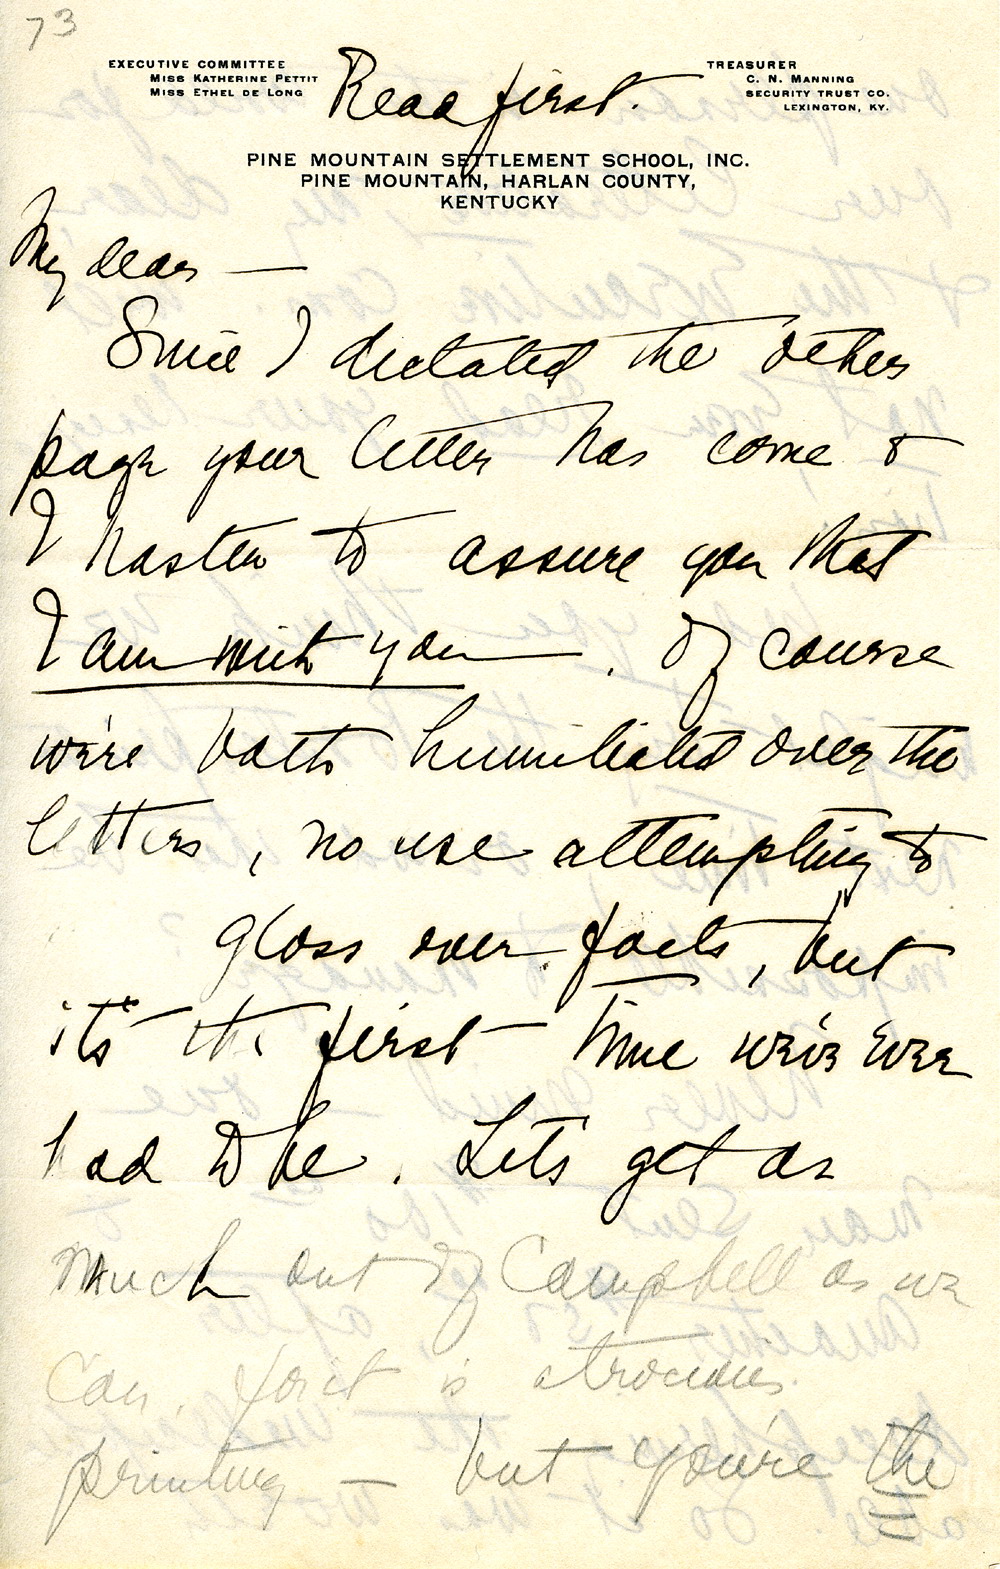 73
EXECUTIVE COMMITTEE
MISS KATHERINE PETTIT
MISS ETHEL DE LONG
Read first.
TREASURER
C. N. MANNING
SECURITY TRUST CO.
LEXINGTON, KY.
PINE MOUNTAIN SETTLEMENT SCHOOL, INC.
PINE MOUNTAIN, HARLAN COUNTY,
KENTUCKY
My dear —
Since I dictated the other
page your letter has come &
I hasten to assure you that
I am with you. Of course
we're both humiliated over the
letters, no use attempting to
gloss over facts, but
it's the first time we've ever
had to be. Let's get as
much out of Campbell as we
can. is atrocious
printing — but you're the